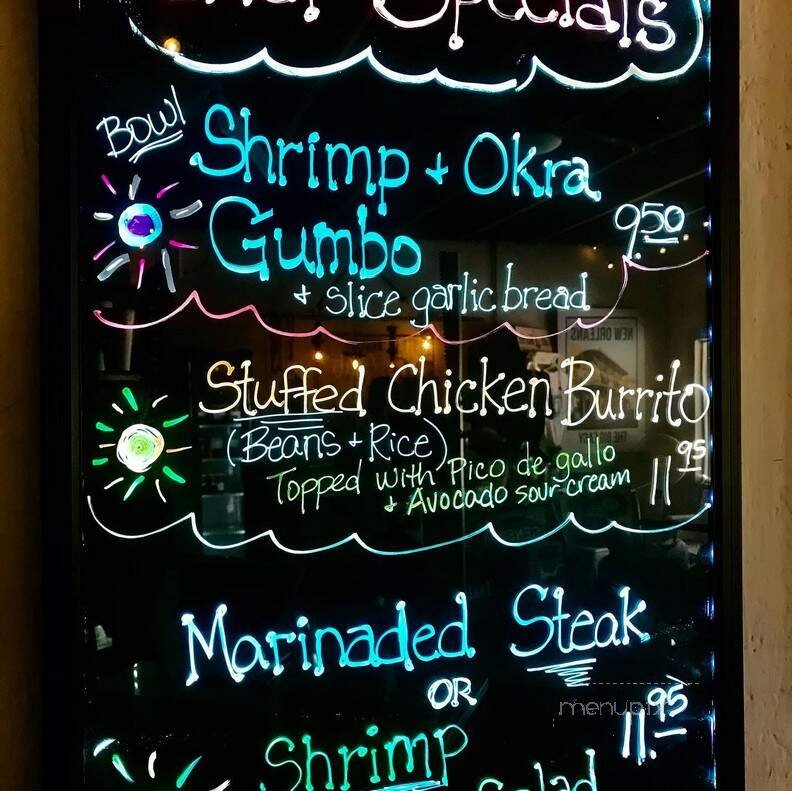 Specials
Bowl
Shrimp + Okra
Gumbo
9.50
+ slice garlic bread
NEW ORLEANS
Stuffed Chicken Burrito
(Beans + Rice)
Topped with Pico de gallo
+ Avocado sour cream
11.95
Marinaded Steak
OR
11.95
Shrimp
Salad